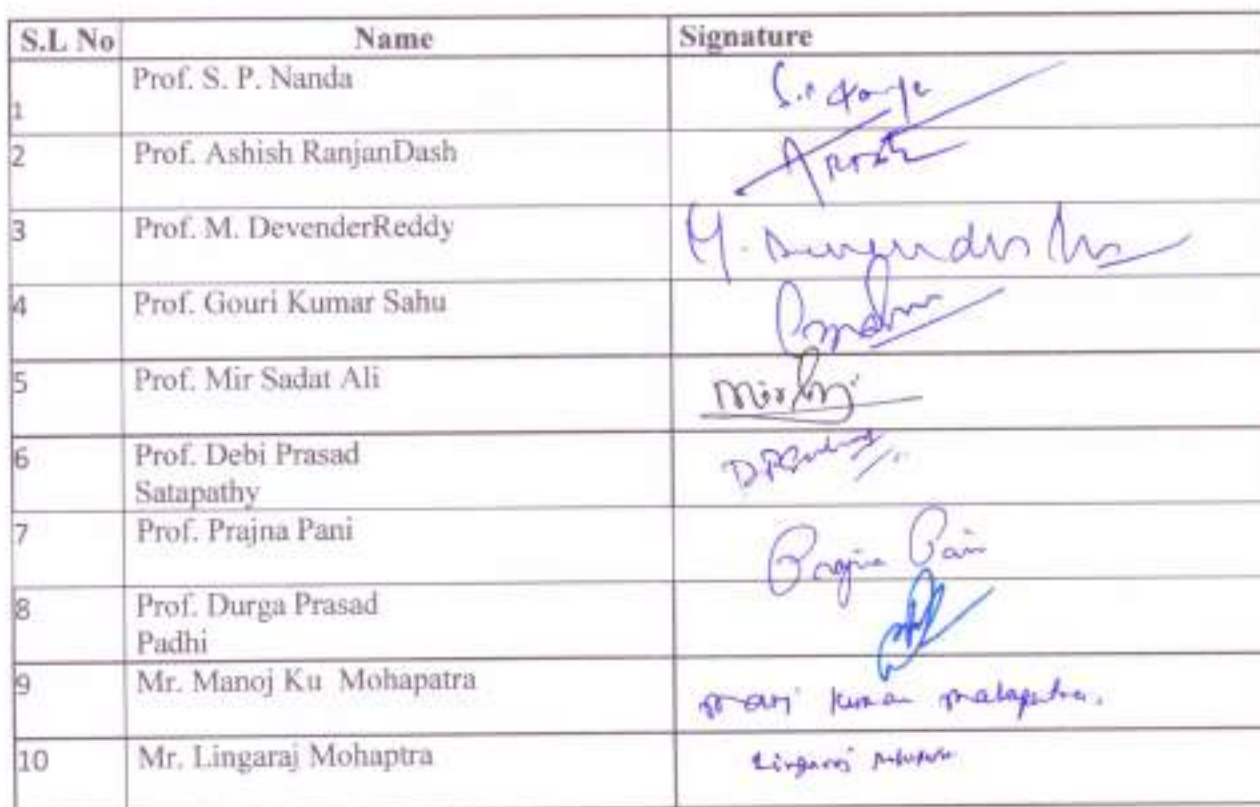 S.L No Name Signature
1 Prof. S. P. Nanda
2 Prof. Ashish RanjanDash
3 Prof. M. DevenderReddy M.
4 Prof. Gouri Kumar Sahu
5 Prof. Mir Sadat Ali
6 Prof. Debi Prasad
Satapathy
7 Prof. Prajna Pani Prajna Pani
8 Prof. Durga Prasad
Padhi
9 Mr. Manoj Ku Mohapatra Manoj Kumar Mohapatra.
10 Mr. Lingaraj Mohaptra Lingaraj